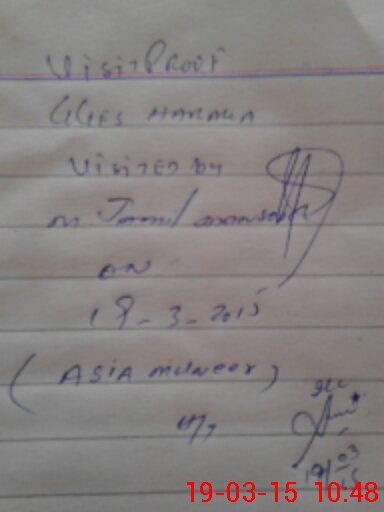 Visit Proof
GGES MARAKA
Visited by
M Jamil
ON
19-3-2015
(ASIA MUNEER)
19/03/15
19-03-15 10:48